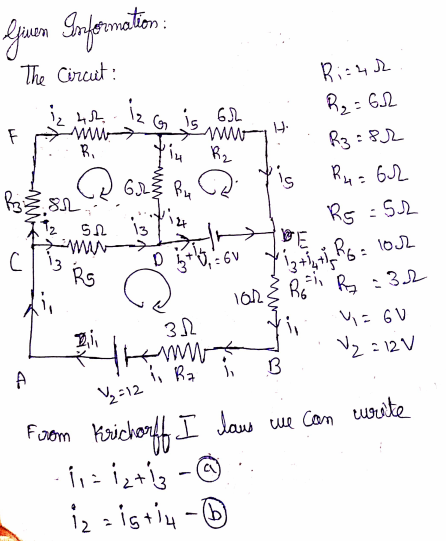 Given Information:
The Circuit:
R1 = 4 Ω
R2 = 6Ω
R3 = 8Ω
R4 = 6Ω
R5 = 5Ω
R6 = 10Ω
R7 = 3Ω
V1 = 6V
V2 = 12V
F i2 4Ω i2 G i5 6Ω H
R1 i4 R2
R3 8Ω 6Ω R4 i5
i2 5Ω i3 i4
C i3 R5 D i3+i4 V1=6V E
i3+i4+i5
=i1
10Ω R6
i1 i1
3Ω
i1 i1 R7 i1
A V2=12 B
From Krichorff I laws we can write
i1 = i2+i3 - (a)
i2 = i5+i4 - (b)